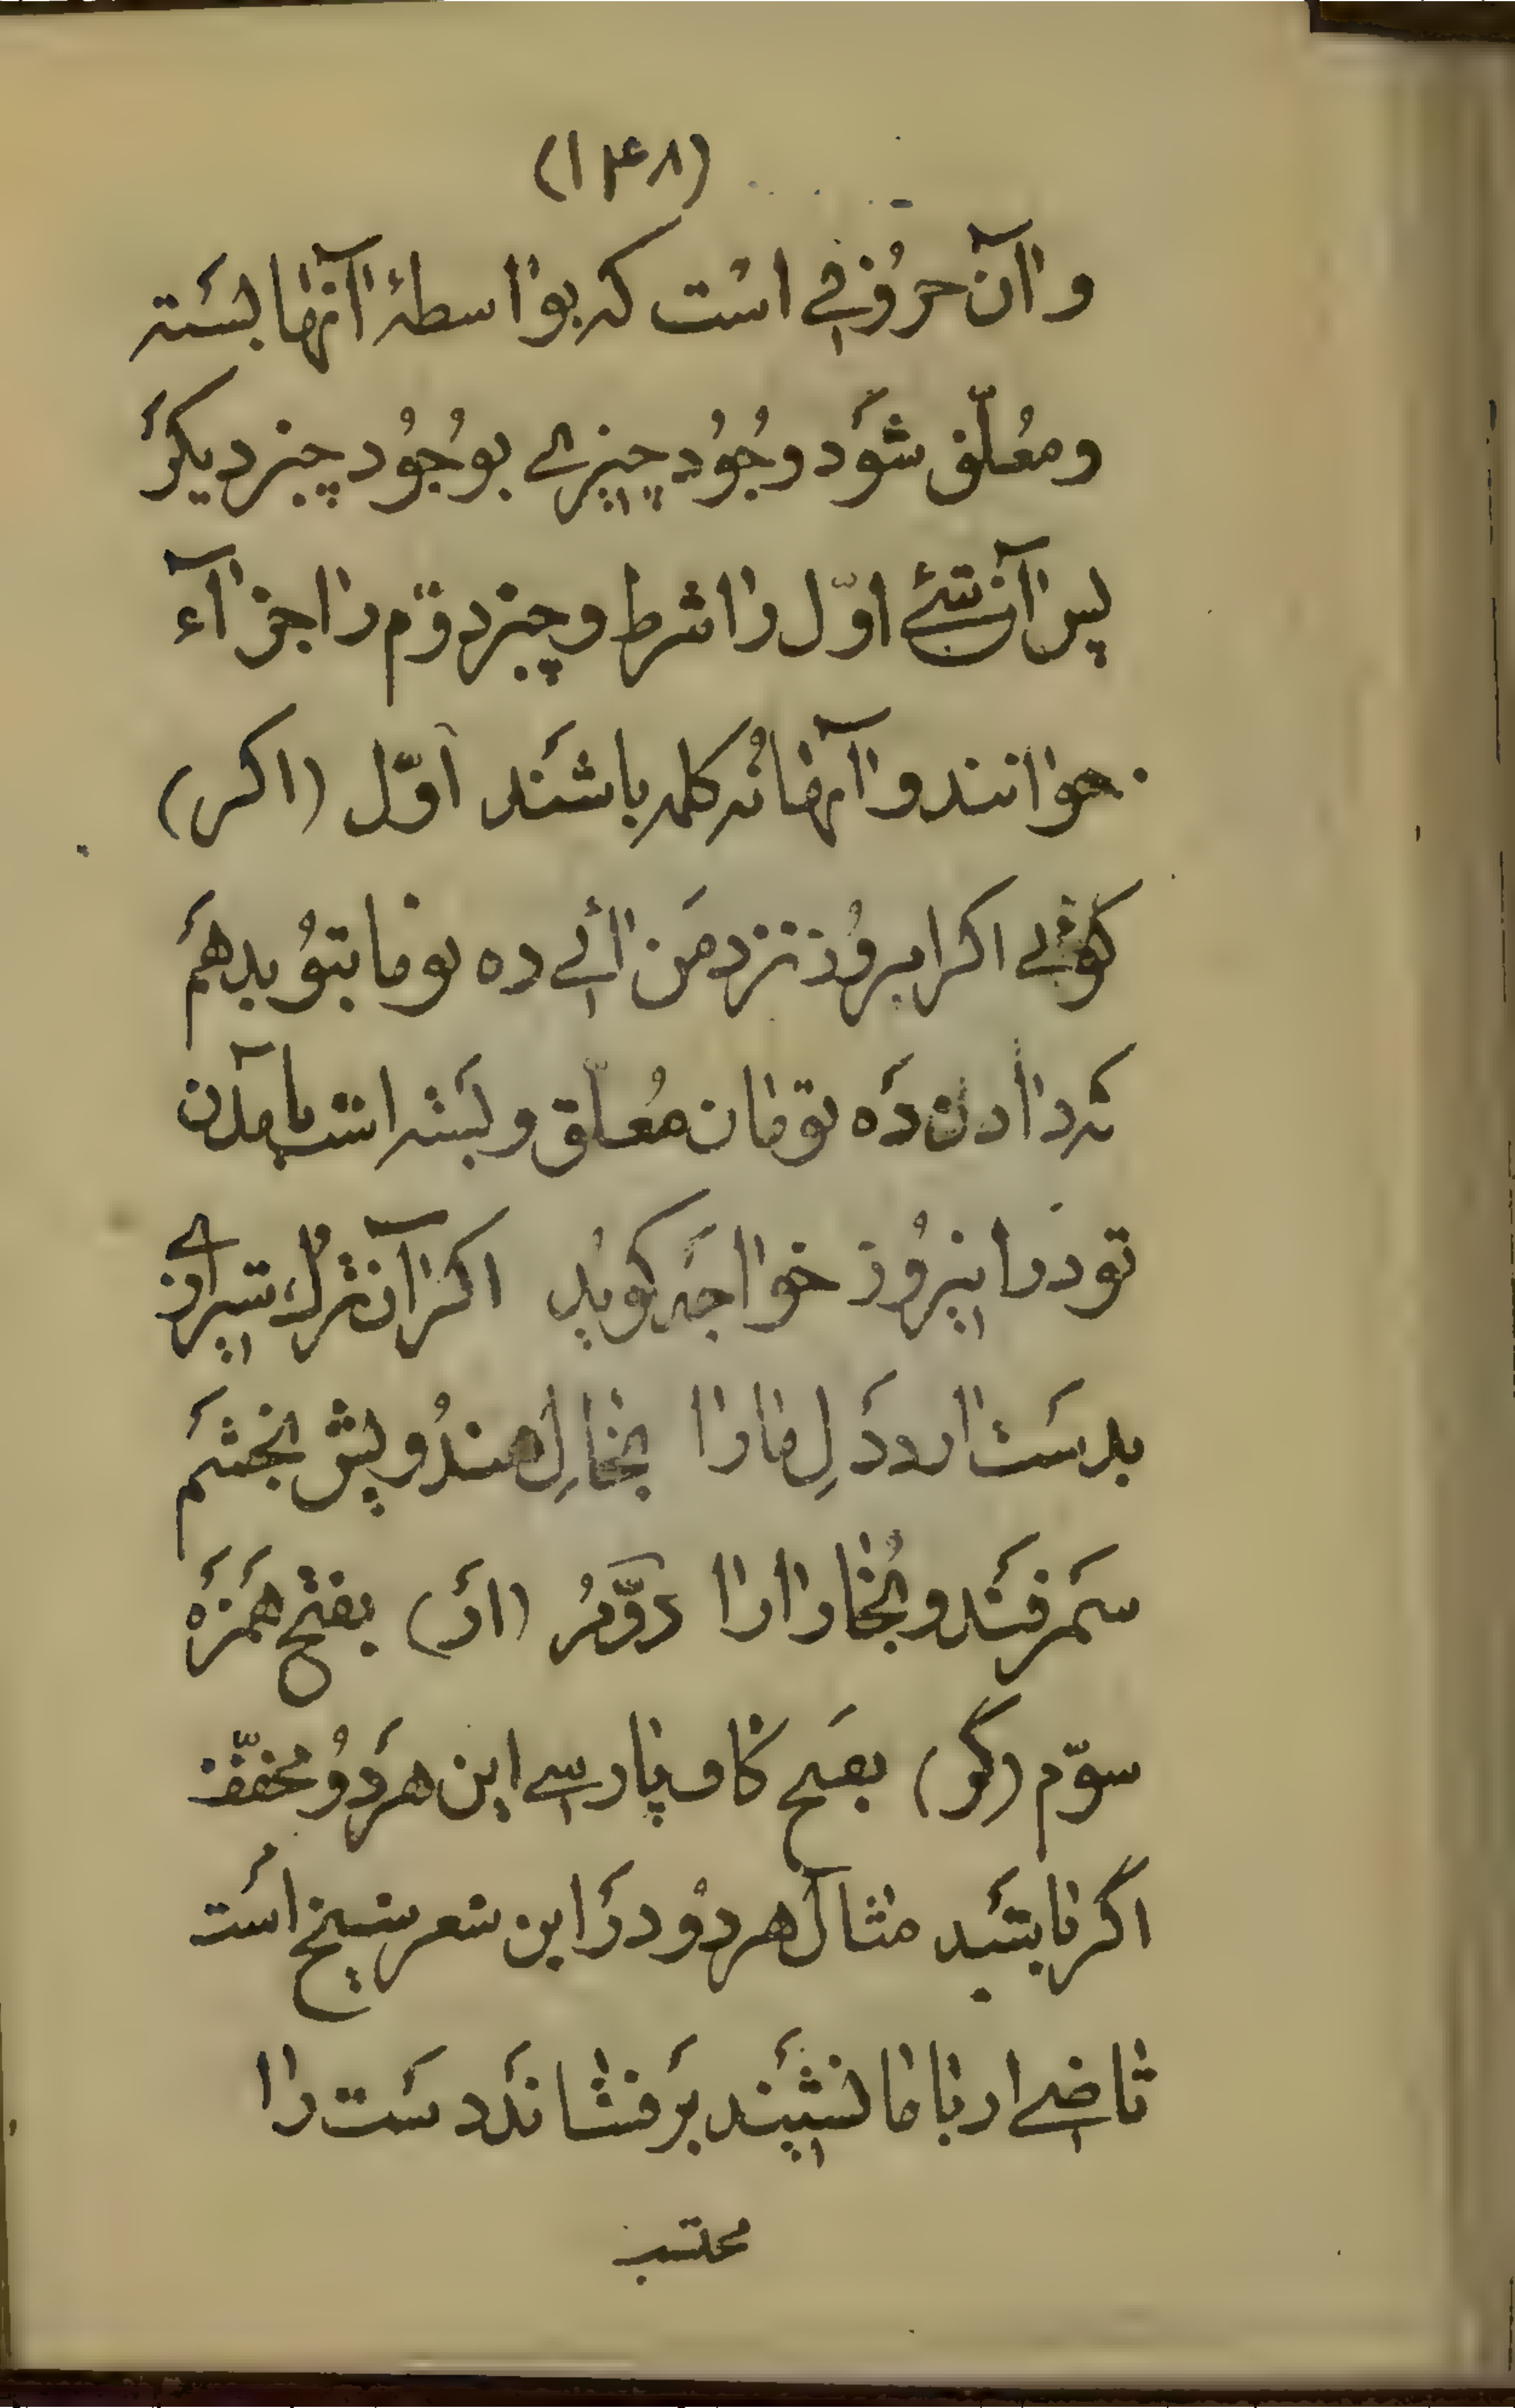 (۱۴۸)
و آن حرُوفی است که بواسطهٔ آنها بسَته
و معُلّق شَوَد وجُوُد چیزی بوُجُوُد چیز دیکَر
پس آن شئے اوّل را شرط و چیز دوّم را جزآء
خوانند و آنها نُه کلمه باشَند اوّل (اکر)
کوئی اکر امروُز نزد مَن آئی ده تومان بتوُ بدهَم
که دادن دَه تومان مُعلّق و بسَته است بآمدن
تو در اینروُز خواجَه کویُد اکر آن تُرک شیرازی
بدسَت ارد دَلِ ما را بخالِ هندُویش بخشَم
سَمرقَند و بُخارا را دوَّمُ (ار) بفتح هَمزَه
سوّم (گر) بفَتح کاف پارسی این هَر دوُ مخفّف
اگر باشَد مثال هر دوُ در این شعر شیخ است
قاضی ار با ما نشیَند بَر فشاندَ دسَت را
محتسب